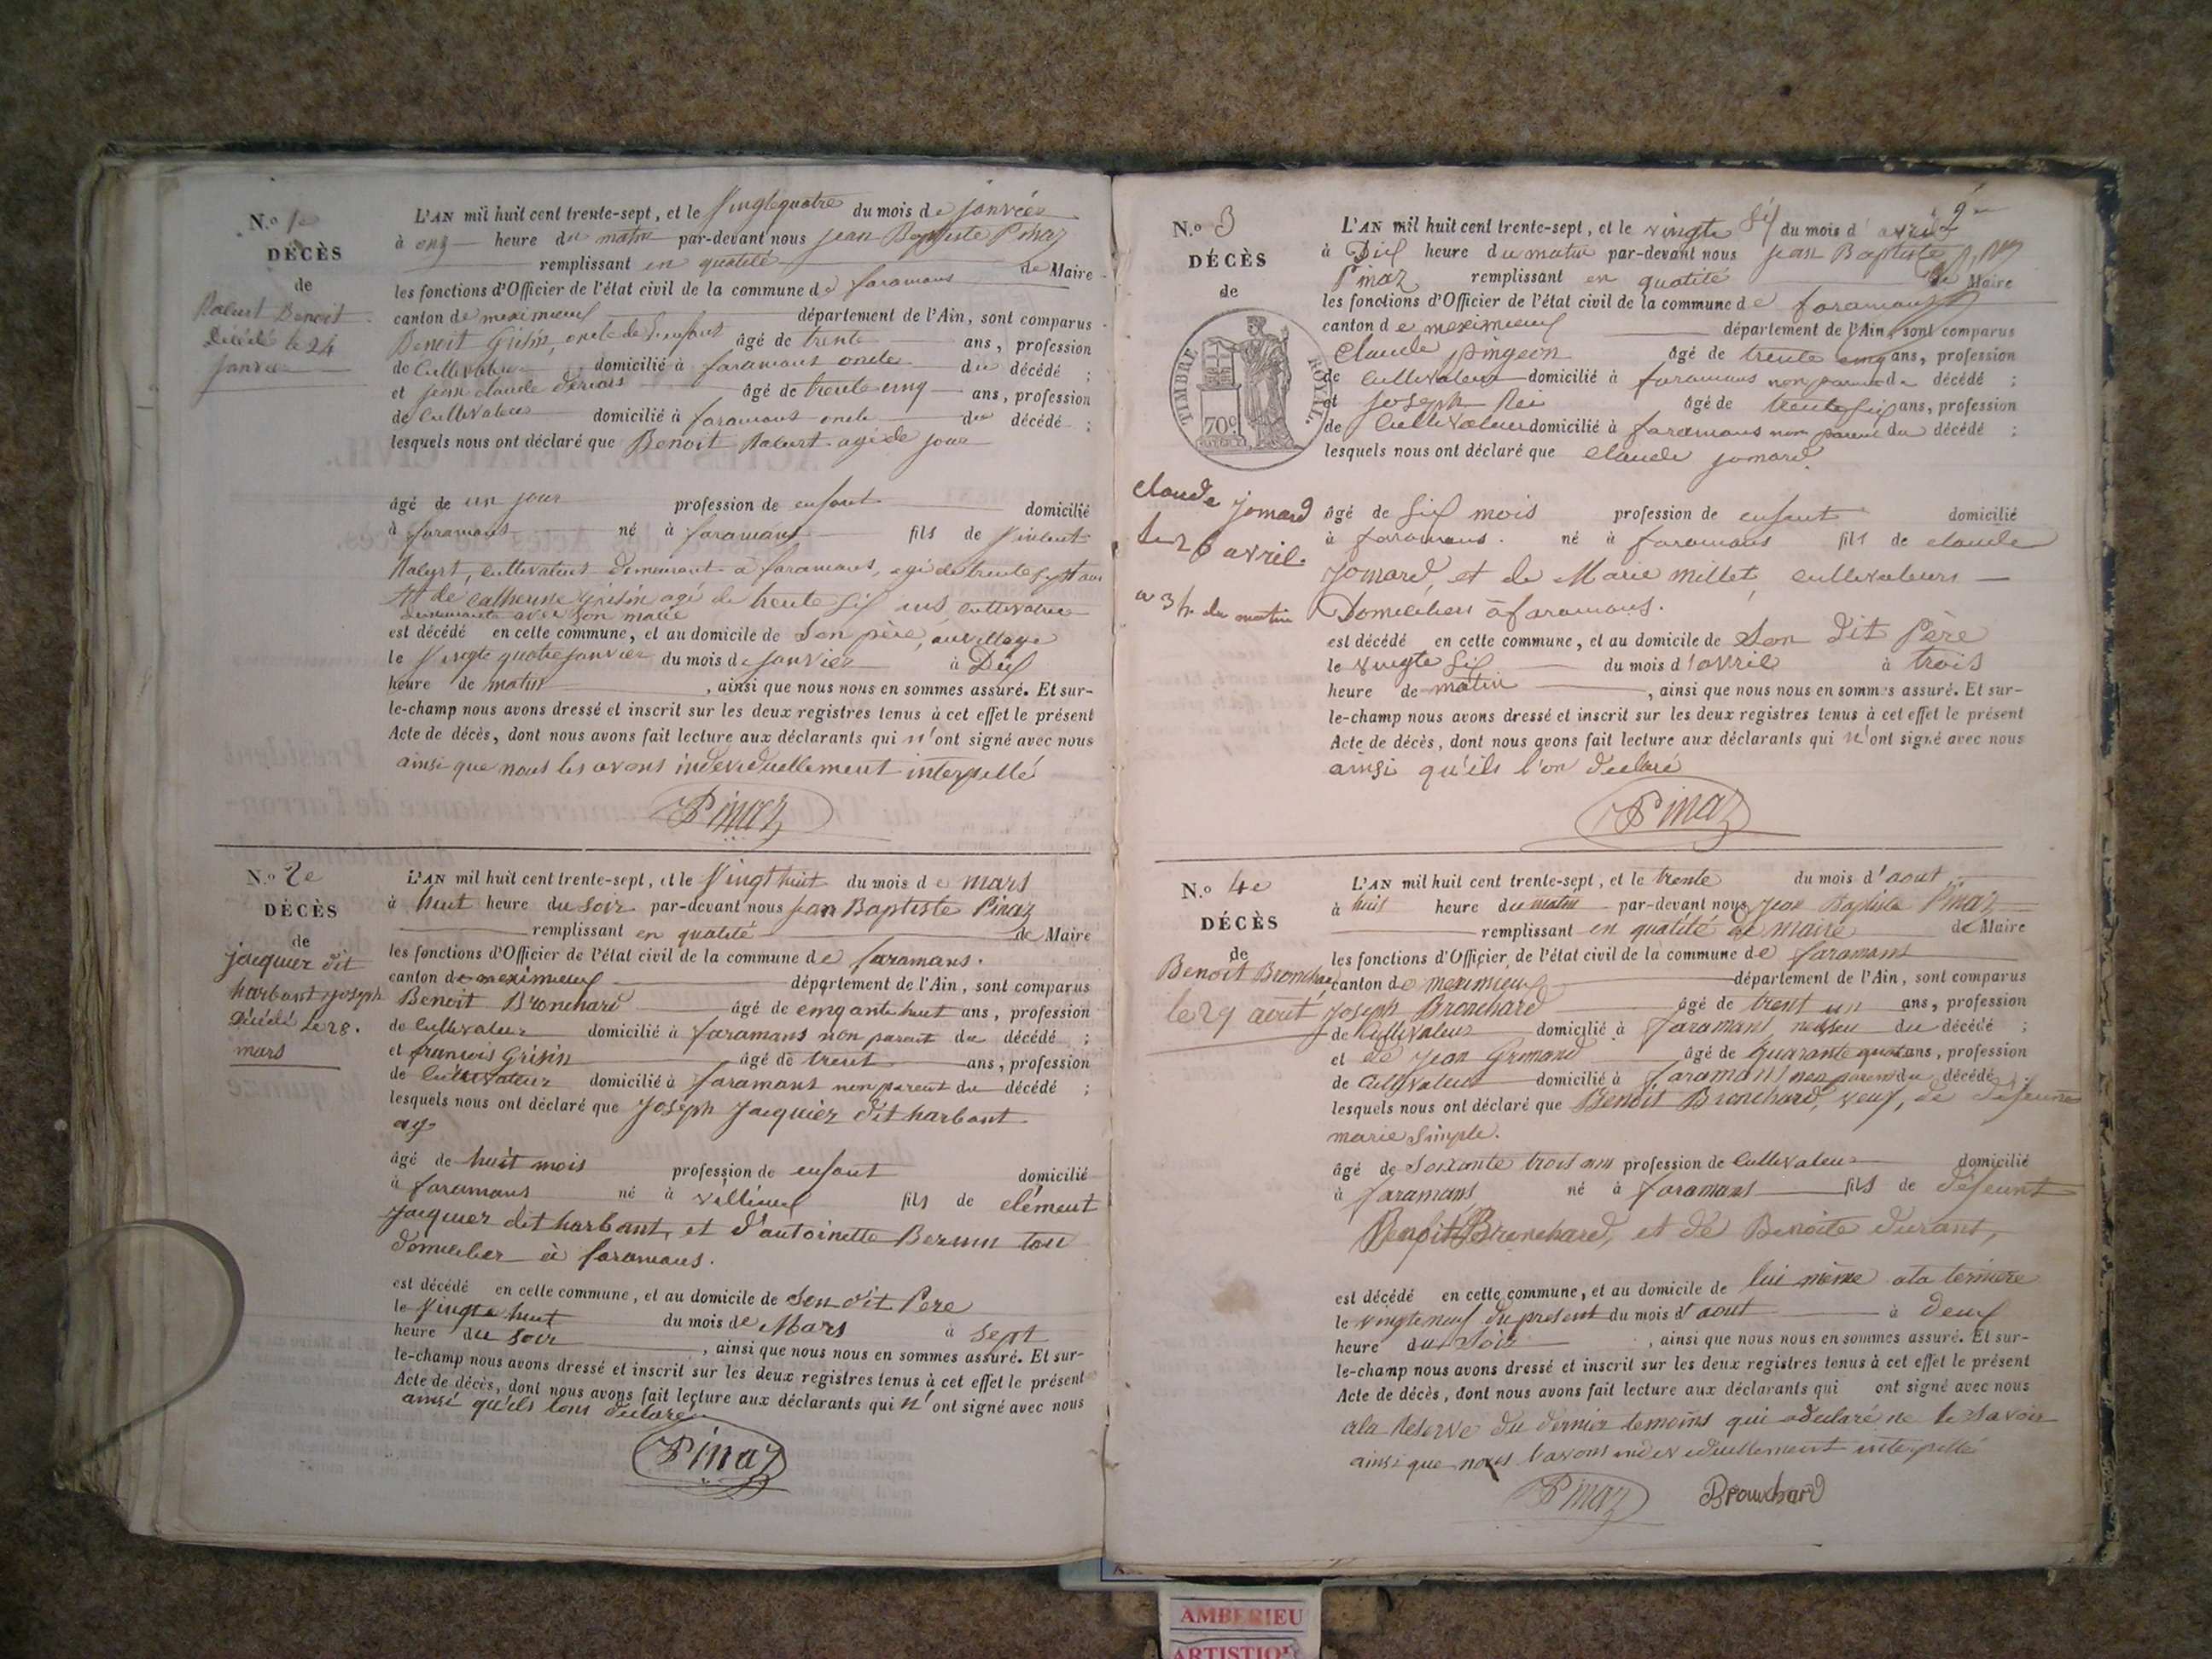 N.o 1e
DÉCÈS
de
Benoit
Décédé le 24
janvier
L'AN mil huit cent trente-sept, et le Vingtequatre du mois de janvier
à onz heure du matin par-devant nous jean Baptiste Pinaz
remplissant en qualité de Maire
les fonctions d'Officier de l'état civil de la commune de faramans
canton de meximieux département de l'Ain, sont comparus
Benoit Grisin, oncle de l'enfant âgé de trente ans, profession
de Cultivateur domicilié à faramans oncle du décédé ;
et jean claude âgé de trente cinq ans, profession
de Cultivateur domicilié à faramans oncle du décédé ;
lesquels nous ont déclaré que Benoit agé de jour
âgé de un jour profession de enfant domicilié
à faramans né à faramans fils de Vincent
cultivateur demeurant à faramans, agé de trente sept ans
et de catherine grisin agé de trente six ans cultivatrice
demeurante avec son marié
est décédé en cette commune, et au domicile de Son père, au village
le Vingte quatre janvier du mois de janvier à Dix
heure de matin , ainsi que nous nous en sommes assuré. Et sur-
le-champ nous avons dressé et inscrit sur les deux registres tenus à cet effet le présent
Acte de décès, dont nous avons fait lecture aux déclarants qui n'ont signé avec nous
ainsi que nous les avons individuellement interpellé
Pinaz
N.o 2e
DÉCÈS
de
jacquier dit
harbant joseph
Décédé le 28.
mars
L'AN mil huit cent trente-sept, et le Vingt huit du mois de mars
à huit heure du soir par-devant nous jean Baptiste Pinaz
remplissant en qualité de Maire
les fonctions d'Officier de l'état civil de la commune de faramans.
canton de meximieux département de l'Ain, sont comparus
Benoit Bronchard âgé de cinqante huit ans, profession
de Cultivateur domicilié à faramans non parent du décédé ;
et francois Grisin âgé de trent ans, profession
de Cultivateur domicilié à faramans non parent du décédé ;
lesquels nous ont déclaré que Joseph Jacquier dit harbant
ag
âgé de huit mois profession de enfant domicilié
à faramans né à villieux fils de clément
Jacquier dit harbant, et d'antoinette tou
domicilier à faramans.
est décédé en cette commune, et au domicile de Son dit Pere
le Vingte huit du mois de Mars à sept
heure du soir , ainsi que nous nous en sommes assuré. Et sur-
le-champ nous avons dressé et inscrit sur les deux registres tenus à cet effet le présent
Acte de décès, dont nous avons fait lecture aux déclarants qui n'ont signé avec nous
ainsi qu'ils lons déclaré
Pinaz
2
N.o 3
DÉCÈS
de
TIMBRE ROYAL.
70c
claude jomard
le 26 avril.
a 3 h. du matin
L'AN mil huit cent trente-sept, et le vingte six du mois d'avril
à Dix heure du matin par-devant nous jean Baptiste
Pinaz remplissant en qualité de Maire
les fonctions d'Officier de l'état civil de la commune de faramans
canton de meximieux département de l'Ain, sont comparus
Claude pingeon âgé de trente cinq ans, profession
de cultivateur domicilié à faramans non parent du décédé ;
et joseph âgé de trente six ans, profession
de Cultivateur domicilié à faramans non parent du décédé ;
lesquels nous ont déclaré que claude jomard
âgé de six mois profession de enfant domicilié
à faramans. né à faramans fils de claude
jomard, et de Marie millet, cultivateurs
Domiciliers à faramans.
est décédé en cette commune, et au domicile de Son dit Père
le vingte six du mois d'avril à trois
heure de matin , ainsi que nous nous en sommes assuré. Et sur-
le-champ nous avons dressé et inscrit sur les deux registres tenus à cet effet le présent
Acte de décès, dont nous avons fait lecture aux déclarants qui n'ont signé avec nous
ainsi qu'ils l'on déclaré
Pinaz
N.o 4e
DÉCÈS
de
Benoit Bronchard
le 29 aout
L'AN mil huit cent trente-sept, et le trente du mois d'aout
à huit heure du matin par-devant nous Jean Baptiste Pinaz
remplissant en qualité de maire de Maire
les fonctions d'Officier de l'état civil de la commune de faramans
canton de meximieux département de l'Ain, sont comparus
Joseph Bronchard âgé de trent un ans, profession
de Cultivateur domicilié à faramans neuveu du décédé ;
et de Jean Grimand âgé de quarante quat ans, profession
de Cultivateur domicilié à faramans non parent du décédé ;
lesquels nous ont déclaré que Benoit Bronchard, veuf, de défeunte
marie Simple.
âgé de Soixante trois ans profession de Cultivateur domicilié
à faramans né à faramans fils de defeunt
Benoit Bronchard, et de Benoite durant,
est décédé en cette commune, et au domicile de lui même
le vingteneuf du present du mois d'aout à deux
heure du Soir , ainsi que nous nous en sommes assuré. Et sur-
le-champ nous avons dressé et inscrit sur les deux registres tenus à cet effet le présent
Acte de décès, dont nous avons fait lecture aux déclarants qui ont signé avec nous
ala Reserve du dernier temoins qui a déclaré ne le savoir
ainsi que nous l'avons individuellement interpellé
Pinaz Brouchard
AMBERIEU
ARTISTIQ